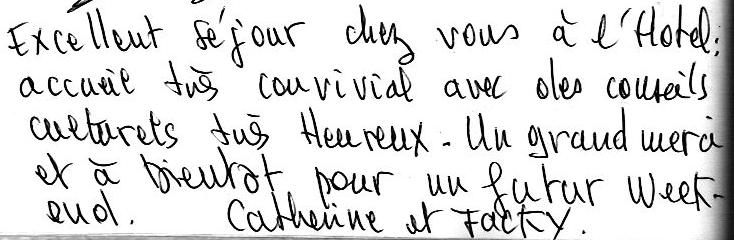 Excellent séjour chez vous à l'Hotel;
accueil très convivial avec des conseils
culturels très Heureux. Un grand merci
et à bientot pour un futur Week-
end. Catherine et Jacky.